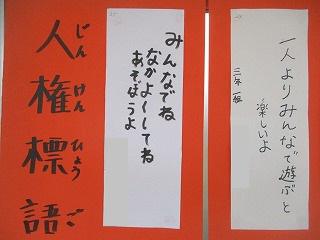 人権標語
じんけんひょうご
みんなでね
なかよくしてね
あそぼうよ
一人よりみんなで遊ぶと
楽しいよ
三年 一組